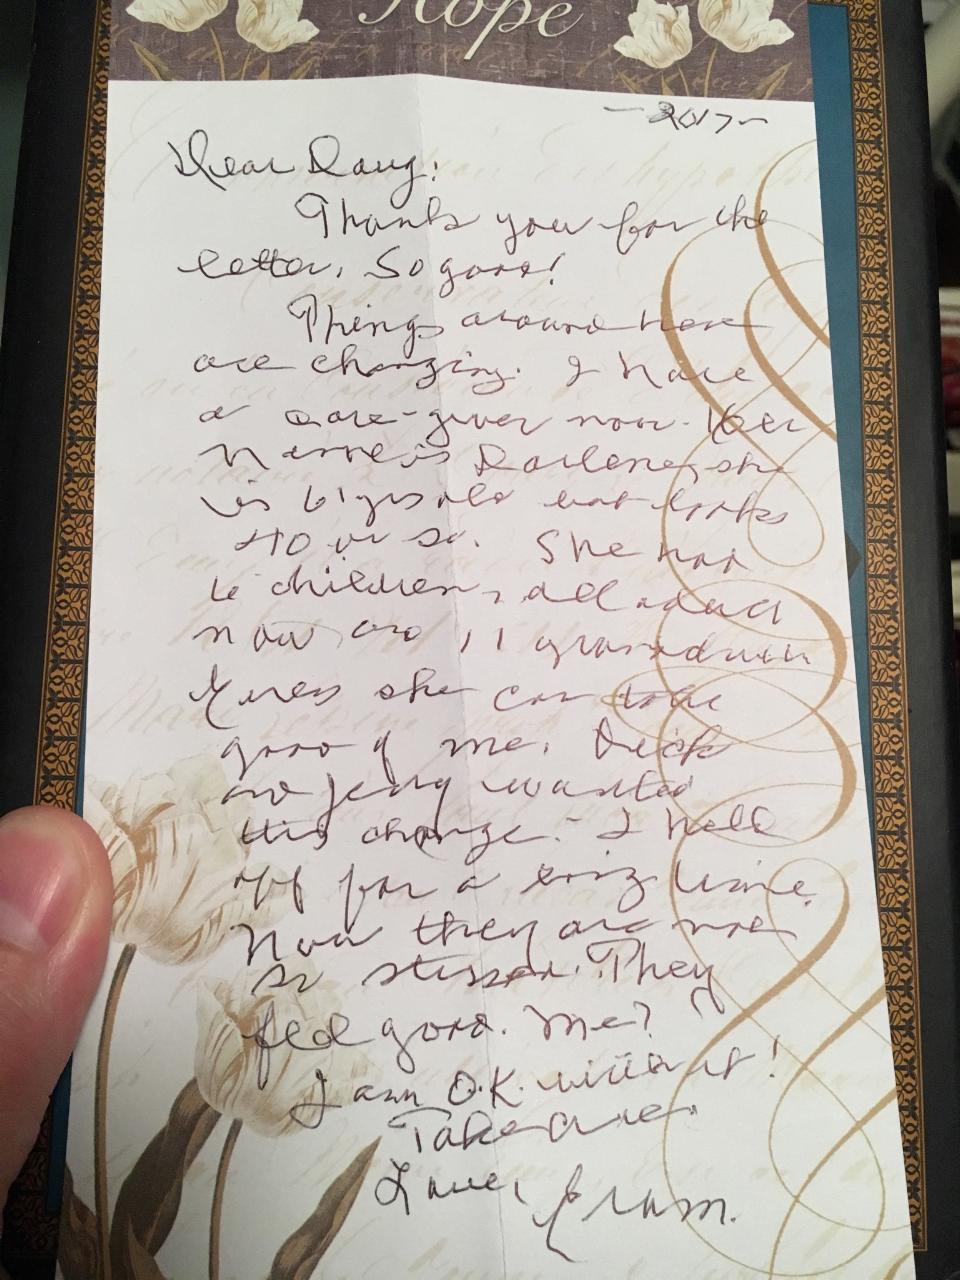 Hope
-2017-
Dear Doug:
Thank you for the
letter. So good!
Things around here
are changing. I have
a care-giver now. Her
name is Darlene, she
is 61 yrs old but looks
40 or so. She has
6 children, all adult
now and 11 grandchil
she can take
good of me. Dick
and Jeny wanted
this change. - I held
off for a long time.
Now they are not
so stressed. They
feel good. Me?
I am O.K. with it!
Take care
Love, Gram.